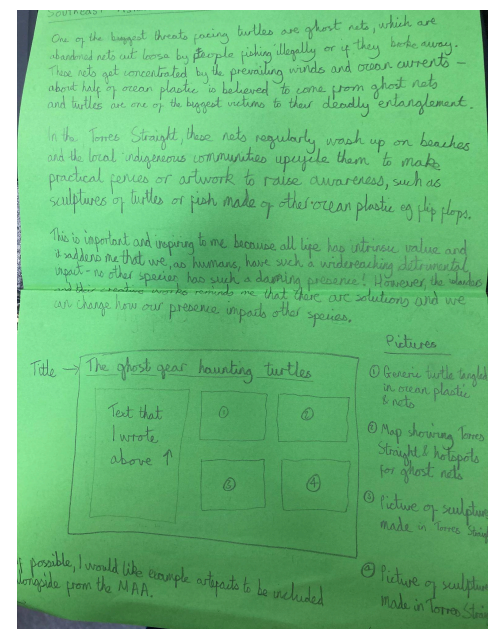 Southeast
One of the biggest threats facing turtles are ghost nets, which are
abandoned nets cut loose by people fishing illegally or if they broke away.
These nets get concentrated by the prevailing winds and ocean currents –
about half of ocean plastic is believed to come from ghost nets
and turtles are one of the biggest victims to their deadly entanglement.
In the Torres Straight, these nets regularly wash up on beaches
and the local indigenous communities upcycle them to make
practical fences or artwork to raise awareness, such as
sculptures of turtles or fish made of other ocean plastic eg flip flops.
This is important and inspiring to me because all life has intrinsic value and
it saddens me that we, as humans, have such a widereaching detrimental
impact - no other species has such a damning presence! However, the islanders
and their creative works reminds me that there are solutions and we
can change how our presence impacts other species.
Pictures
Title → The ghost gear haunting turtles
① Generic turtle tangled
in ocean plastic
& nets
Text that
I wrote
above ↑
① ②
③ ④
② Map showing Torres
Straight & hotspots
for ghost nets
③ Picture of sculpture
made in Torres Straig
④ Picture of sculpture
made in Torres Strai
If possible, I would like example artifacts to be included
alongside from the MAA.